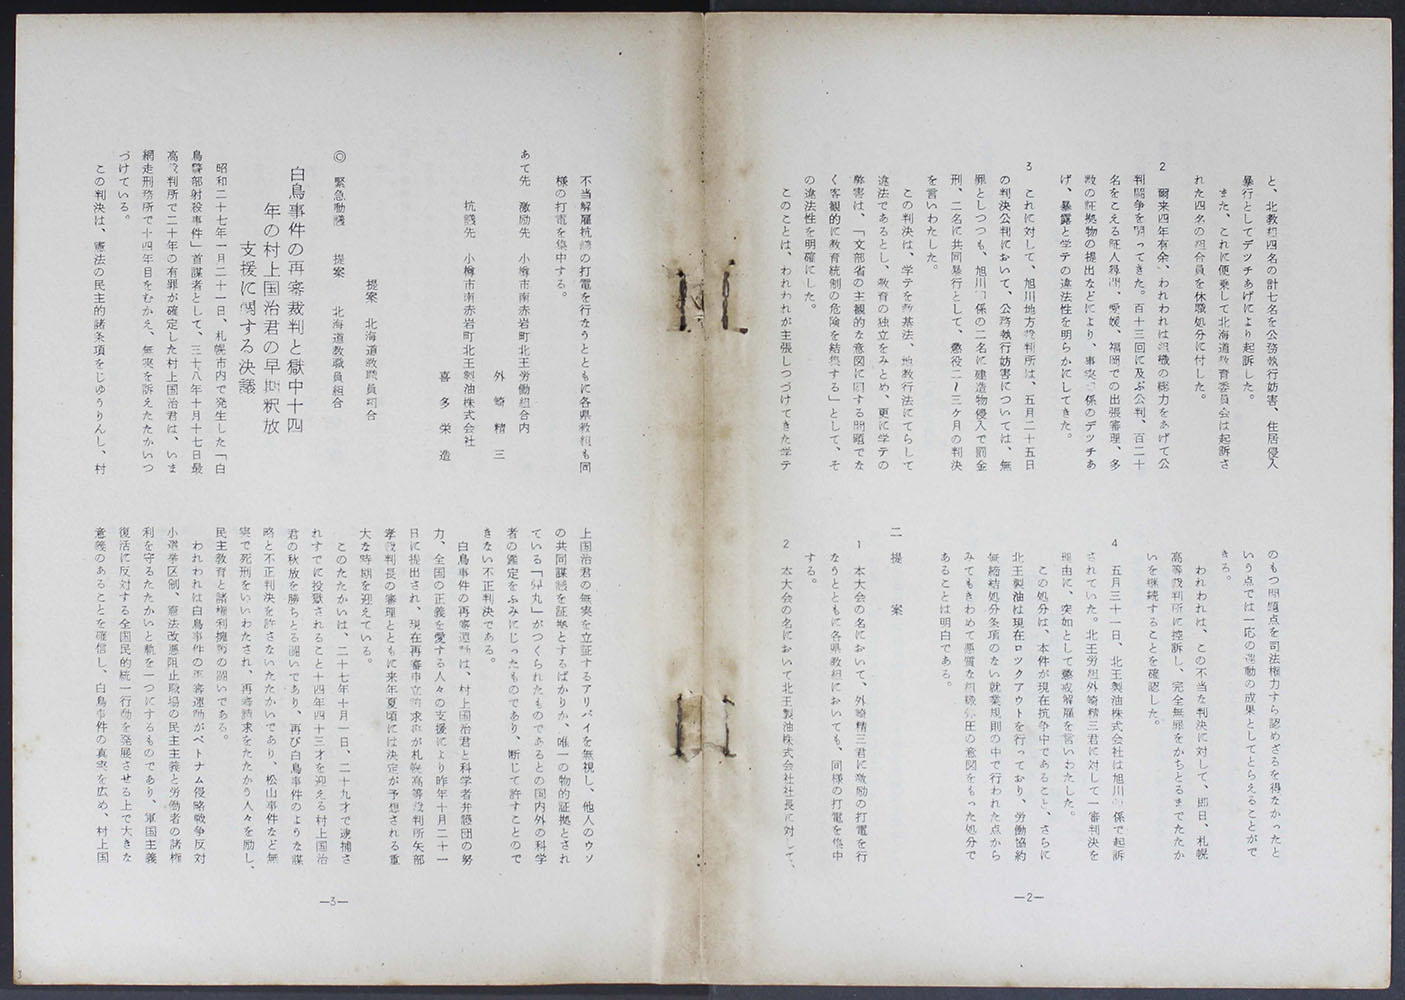 と、北教組四名の計七名を公務執行妨害、住居侵入
暴行としてデツチあげにより起訴した。
また、これに便乗して北海道教育委員会は起訴さ
れた四名の組合員を休職処分に付した。
2 爾来四年有余、われわれは組織の総力をあげて公
判闘争を闘ってきた。百十三回に及ぶ公判、百二十
名をこえる証人尋問、愛媛、福岡での出張審理、多
数の証拠物の提出などにより、事実関係のデツチあ
げ、暴露と学テの違法性を明らかにしてきた。
3 これに対して、旭川地方裁判所は、五月二十五日
の判決公判において、公務執行妨害については、無
罪としつつも、旭川関係の二名に建造物侵入で罰金
刑、二名に共同暴行として、懲役二~三ケ月の判決
を言いわたした。
この判決は、学テを教基法、地教行法にてらして
違法であるとし、教育の独立をみとめ、更に学テの
弊害は、「文部省の主観的な意図に関する問題でな
く客観的に教育統制の危険を結集する」として、そ
の違法性を明確にした。
このことは、われわれが主張しつづけてきた学テ
のもつ問題点を司法権力すら認めざるを得なかったと
いう点では一応の運動の成果としてとらえることがで
きる。
われわれは、この不当な判決に対して、即日、札幌
高等裁判所に控訴し、完全無罪をかちとるまでたたか
いを継続することを確認した。
4 五月三十一日、北王製油株式会社は旭川関係で起訴
されていた。北王労組外崎精三君に対して一審判決を
理由に、突如として懲戒解雇を言いわたした。
この処分は、本件が現在抗争中であること、さらに
北王製油は現在ロツクアウトを行っており、労働協約
無締結処分条項のない就業規則の中で行われた点から
みてもきわめて悪質な組織弾圧の意図をもった処分で
あることは明白である。
二 提 案
1 本大会の名において、外崎精三君に激励の打電を行
なうとともに各県教組においても、同様の打電を集中
する。
2 本大会の名において北王製油株式会社社長に対して、
—2—
不当解雇抗議の打電を行なうとともに各県教組も同
様の打電を集中する。
あて先 激励先 小樽市南赤岩町北王労働組合内
外 崎 精 三
抗議先 小樽市南赤岩町北王製油株式会社
喜 多 栄 造
提案 北海道教職員組合
◎ 緊急動議 提案 北海道教職員組合
白鳥事件の再審裁判と獄中十四
年の村上国治君の早期釈放
支援に関する決議
昭和二十七年一月二十一日、札幌市内で発生した「白
鳥警部射殺事件」首謀者として、三十八年十月十七日最
高裁判所で二十年の有罪が確定した村上国治君は、いま
網走刑務所で十四年目をむかえ、無実を訴えたたかいつ
づけている。
この判決は、憲法の民主的諸条項をじゆうりんし、村
上国治君の無実を立証するアリバイを無視し、他人のウソ
の共同謀議を証拠とするばかりか、唯一の物的証拠とされ
ている「弾丸」がつくられたものであるとの国内外の科学
者の鑑定をふみにじったものであり、断じて許すことので
きない不正判決である。
白鳥事件の再審運動は、村上国治君と科学者弁護団の努
力、全国の正義を愛する人々の支援により昨年十月二十一
日に提出され、現在再審申立請求書が札幌高等裁判所矢部
孝裁判長の審理とともに来年夏頃には決定が予想される重
大な時期を迎えている。
このたたかいは、二十七年十月一日、二十九才で逮捕さ
れすでに投獄されること十四年四十三才を迎える村上国治
君の秋放を勝ちとる闘いであり、再び白鳥事件のような謀
略と不正判決を許さないたたかいであり、松山事件など無
実で死刑をいいわたされ、再審請求をたたかう人々を励し、
民主教育と諸権利擁護の闘いである。
われわれは白鳥事件の再審運動がベトナム侵略戦争反対
小選挙区制、憲法改悪阻止職場の民主主義と労働者の諸権
利を守るたたかいと軌を一つにするものであり、軍国主義
復活に反対する全国民的統一行動を発展させる上で大きな
意義のあることを確信し、白鳥事件の真実を広め、村上国
—3—